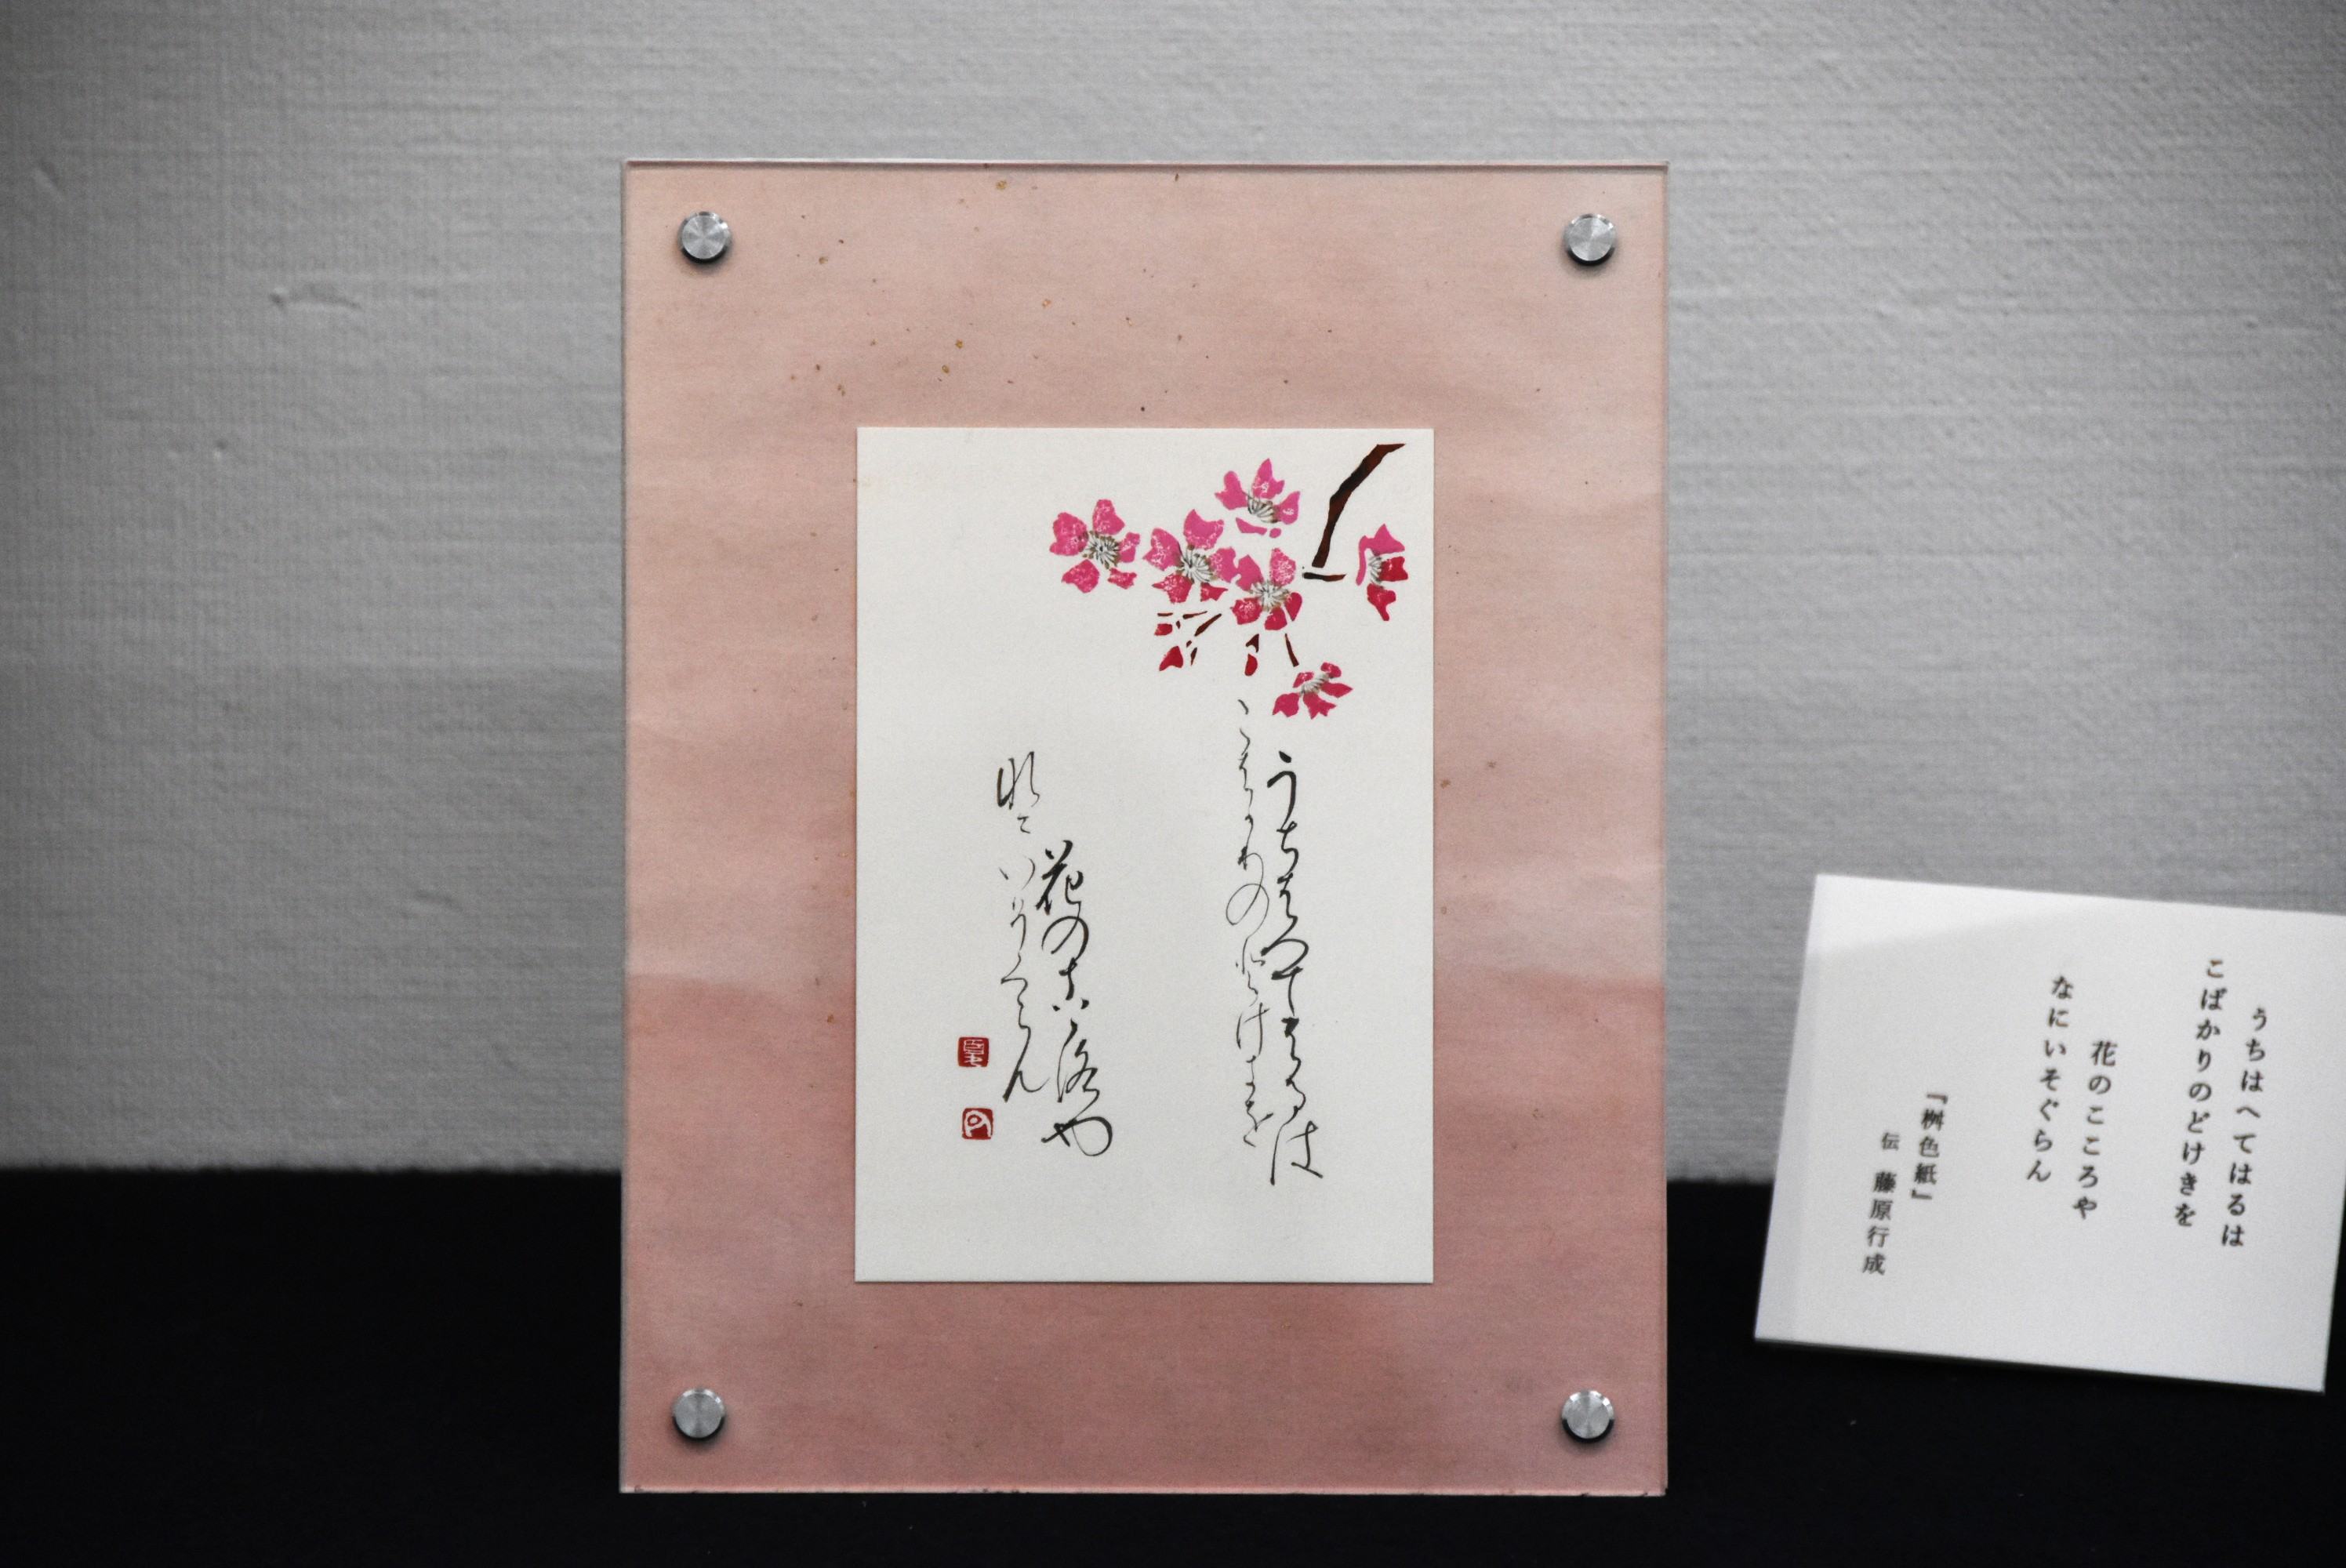 うちはへてはるは
こはかりのとけきを
花のこゝろや
なにいそくらん
うちはへてはるは
こばかりのどけきを
花のこころや
なにいそぐらん
『桝色紙』
伝 藤原行成